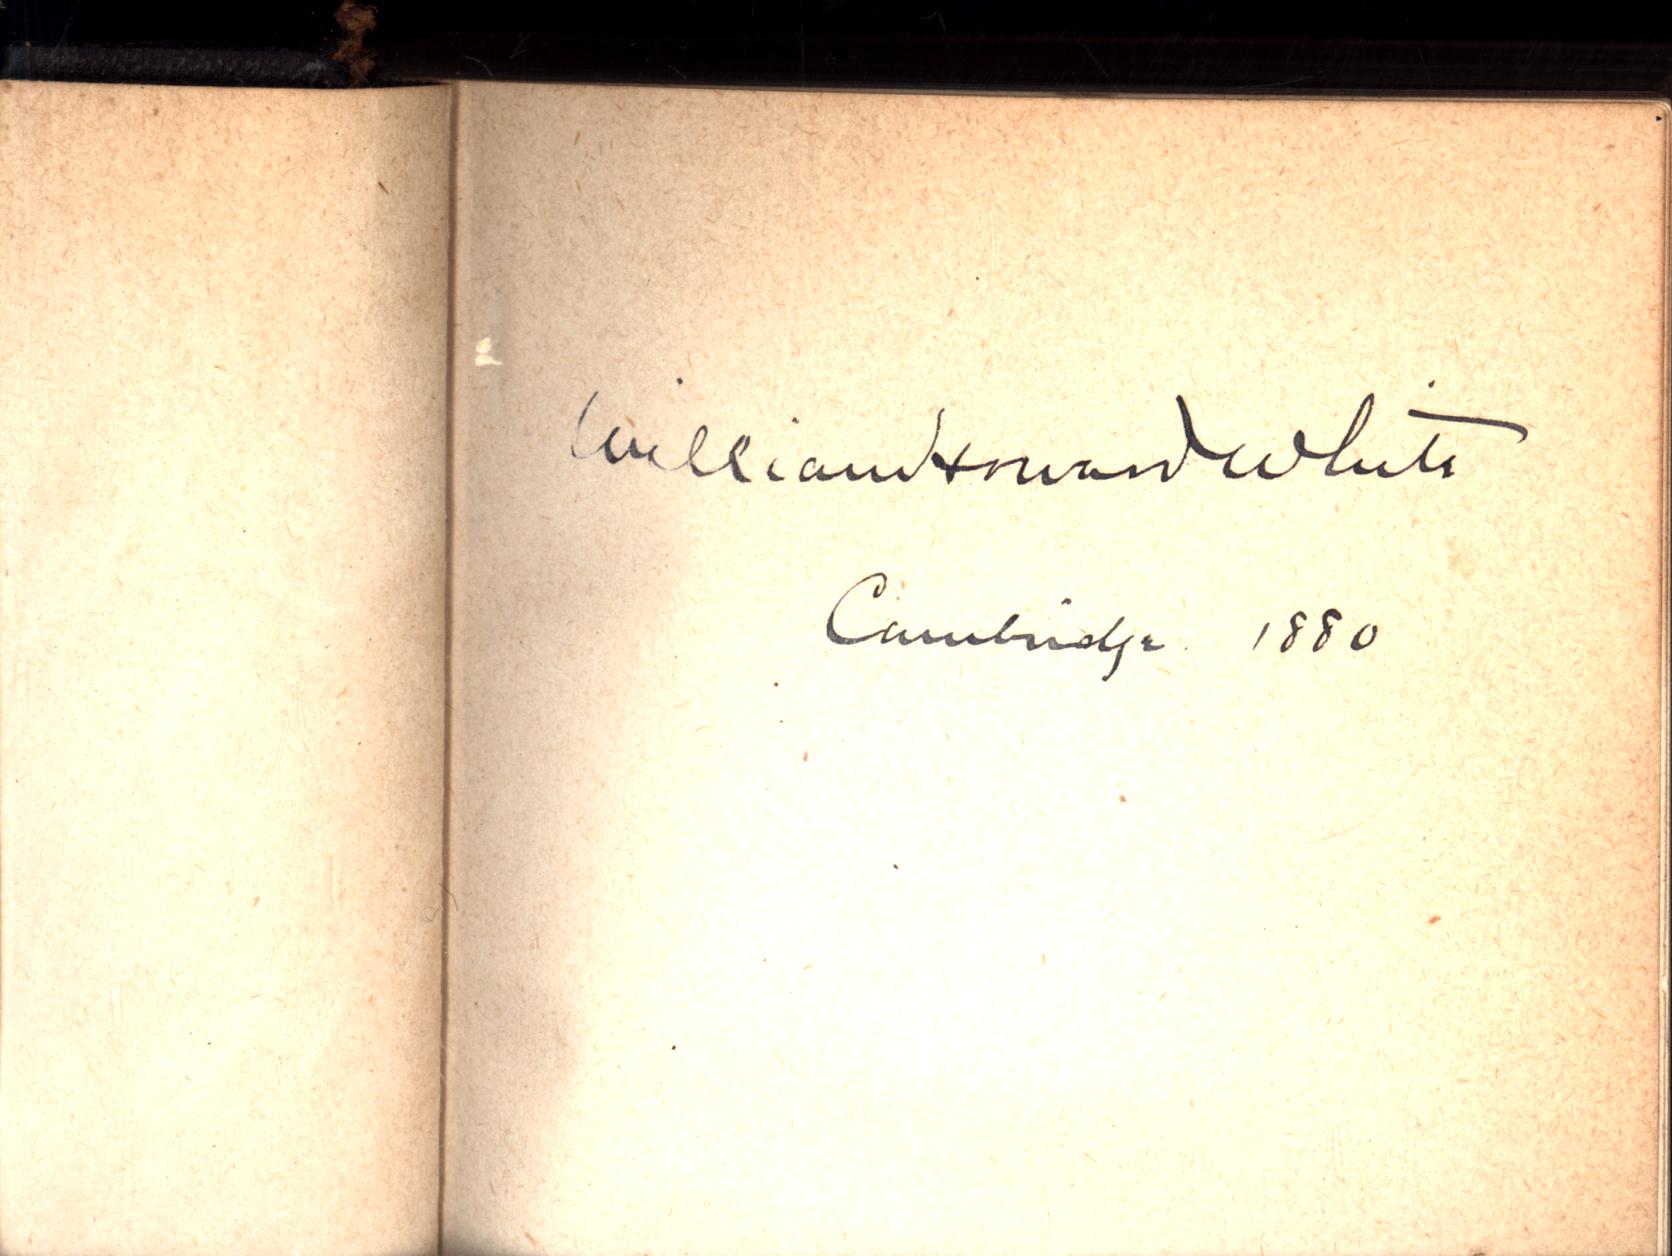 William Howard White
Cambridge. 1880